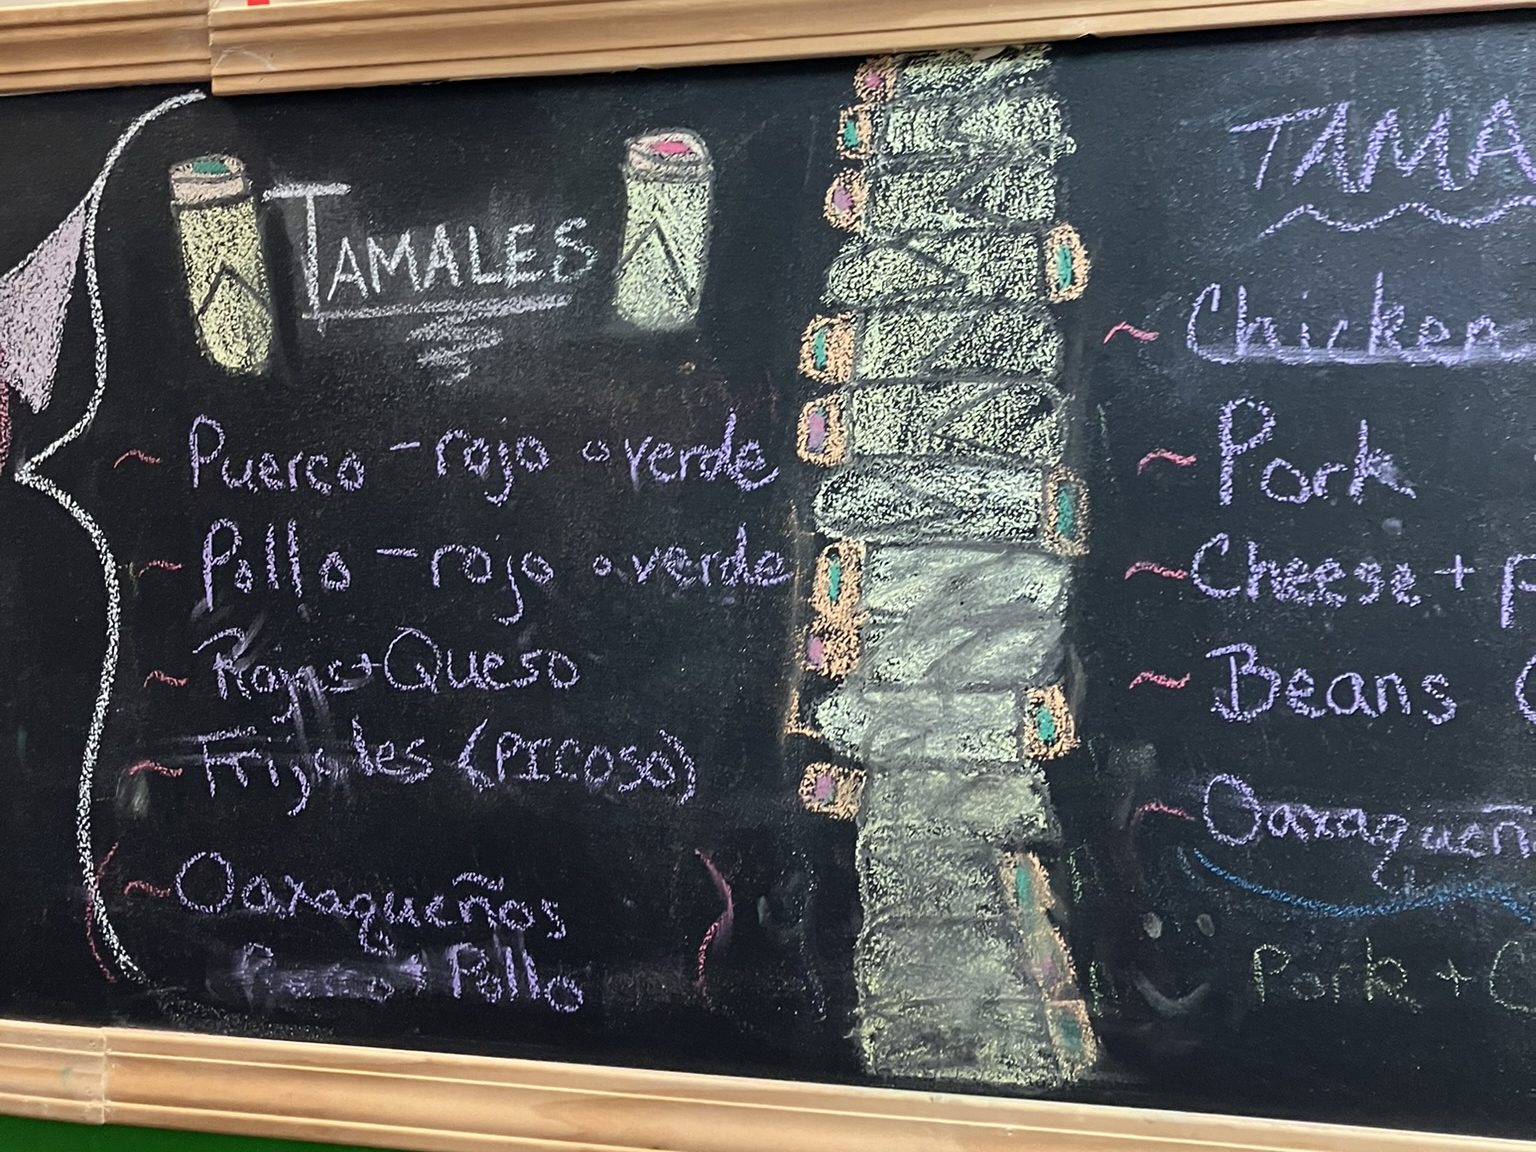 TAMALES
~ Puerco - rojo o verde
~ Pollo - rojo o verde
~ Rajas + Queso
~ Frijoles (PICOSO)
~ Oaxaqueños
Puerco + Pollo
TAMA
~ Chicken
~ Pork
~ Cheese +
~ Beans
~ Oaxaqueñ
Pork +